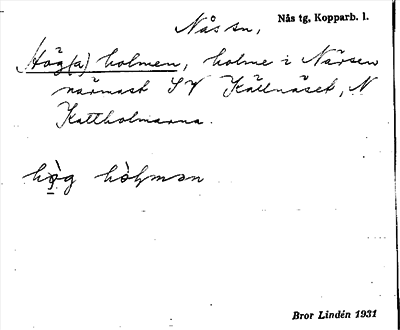 Nås sn, Nås tg, Kopparb. l.
Hög(a) holmen, holme i Nårsen
närmast SV Källnäset, N
Kattholmarna.
hò̱g hòḷmən
Bror Lindén 1931